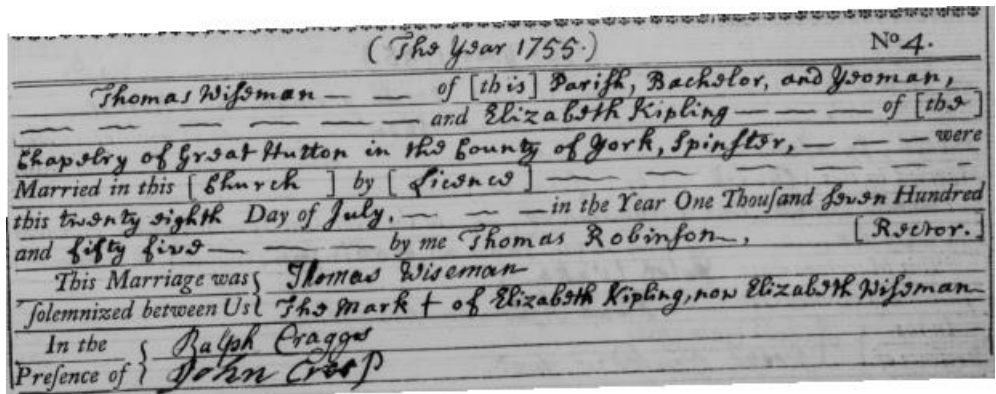 (The Year 1755.) No 4.
Thomas Wiſeman — — of [this] Pariſh, Bachelor, and Yeoman,
— — — — — — — and Elizabeth Kipling — — — — of [the]
Chapelry of Great Hutton in the County of York, Spinſter, — — — were
Married in this [Church] by [Licence] — — — — — — —
this twenty eighth Day of July. — — — in the Year One Thouſand ſeven Hundred
and fifty five — — — — by me Thomas Robinſon, [Rector.]
This Marriage was { Thomas Wiseman
ſolemnized between Us { The Mark † of Elizabeth Kipling, now Elizabeth Wiſeman
In the { Ralph Craggs
Preſence of { John